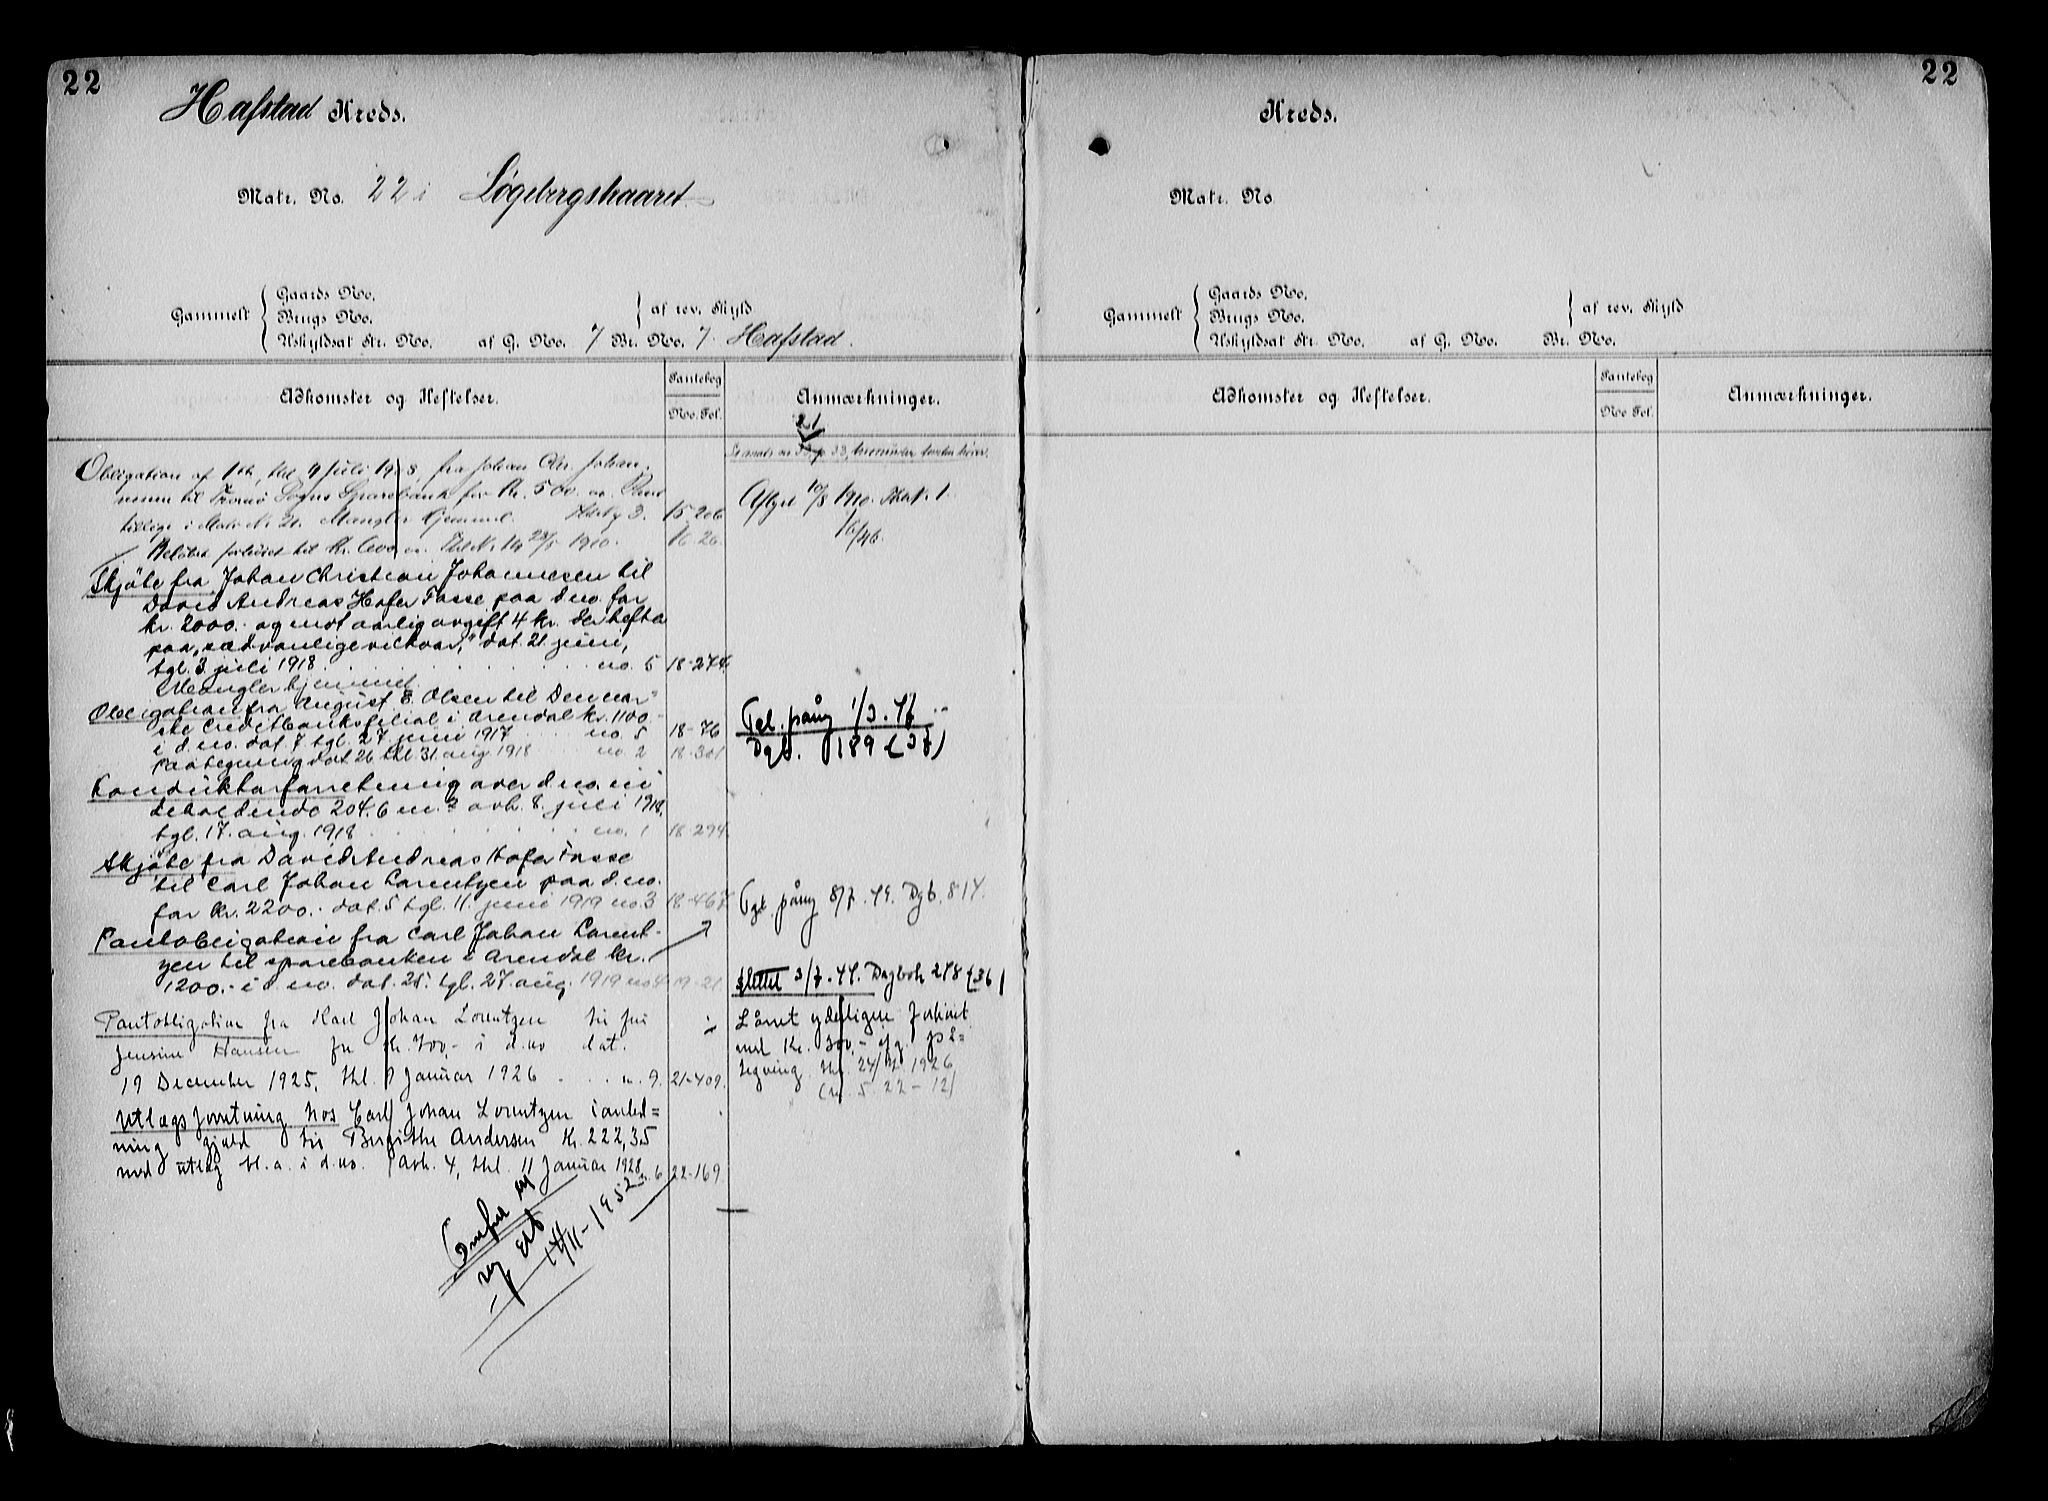 22
Hafstad Kreds.
Matr. No. 22 i Løgebergskaaret
Gammelt
Gaards No.
Brugs No.
af rev. Skyld
Uskyldsat Str. No. af G. No. 7 Br. No. 7. Hafstad.
Adkomster og Heftelser.
Pantebog
No. Fol.
Anmærkninger.
21
Obligation af 1ste, thl 4 Juli 1908, fra Johan Chr. Johan-
nesen til Tromø Sogns Sparebank for Kr. 500.
tillige i Matr Nr 21. Mangler Hjemmel. No 3. 15-206
Beløbet forhøiet til Kr. 600 Thl Nr 14 28/5 1910. 16-26
Aflyst 10/8 1910. Thl Nr. 1.
Skjøte fra Johan Christian Johannesen til
David Andreas Hofer Tasse paa d.no. for
kr. 2000.- og mot aarlig avgift 4 kr. der hefta
paa „sædvanlige vilkaar," dat. 21 juni,
tgl. 3 juli 1918 no. 5 18-274
Mangler hjemmel.
Obligation fra August E. Olsen til Den nor-
ske Creditbanks filial i Arendal kr. 1100.-
i d.no. dat. 7 tgl. 27 juni 1917 no. 5 18-76
paategning dat. 26 thl. 31 aug 1918 no 2 18-301
Tgl. påny 1/3.47
Dgb. 189 (37)
Konduktørforretning over d.no. in
deholdende 204.6 m.2 avh. 8. juli 1918,
tgl. 17. aug. 1918 no. 1 18-294
Skjøte fra David Andreas Hofer Tasse
til Carl Johan Larentzen paa d.no.
for kr. 2200.- dat. 5 tgl. 11. juni 1919 no. 3 18-467
Tgl. påny 8/7. 49. Dgb. 814.
Pantobligation fra Carl Johan Larent-
zen til sparebanken i Arendal kr.
1200.- i d. no. dat. 25. tgl. 27. aug. 1919 no 4 19-21
Slettet 3/7.47. Dagbok 278 (36)
Pantobligation fra Karl Johan Lorentzen til fru
Jensine Hansen for Kr. 700,- i d.no dat.
19 December 1925, thl. 9 Januar 1926 n. 9. 21-409.
Lånet yderligere forhøiet
med Kr. 300,- ifg. på=
tegning thl. 24/ 1926
(nr 5. 22-12)
Utlægsforretning hos Carl Johan Lorentzen i anled=
ning gjæld til Bergithe Andersen Kr. 222,35
med utlæg bl. a. i d.no. Avh. 4, thl. 11 Januar 1928 n. 6 22-169
14/11-1952
22
Kreds.
Matr. No.
Gammelt
Gaards No.
Brugs No.
af rev. Skyld
Uskyldsat Str. No. af G. No. Br. No.
Adkomster og Heftelser.
Pantebog
No Fol.
Anmærkninger.